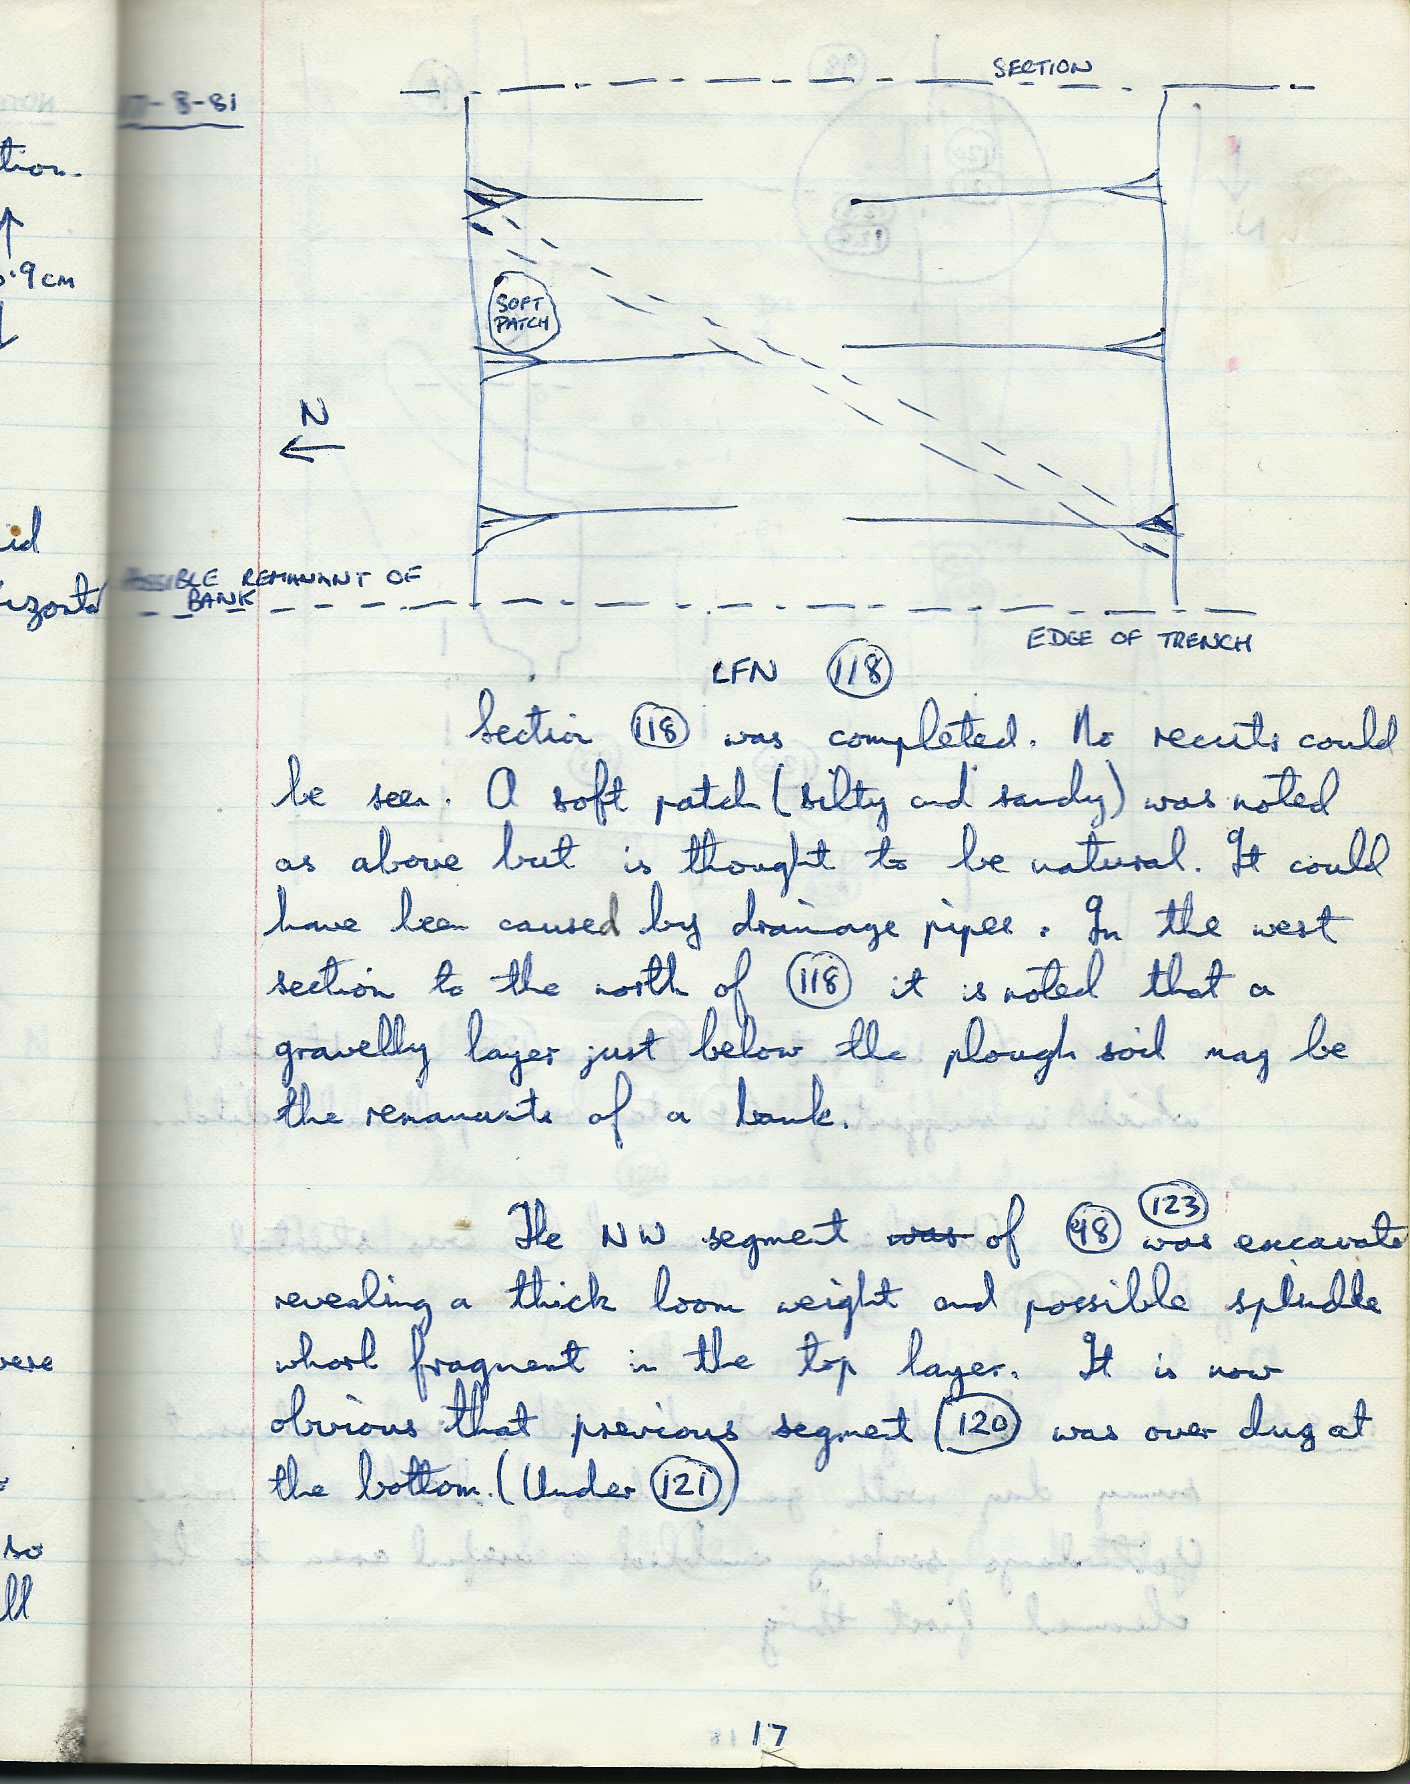 17-8-81
SECTION
SOFT
PATCH
N
POSSIBLE REMANANT OF
BANK
EDGE OF TRENCH
LFN 118
Section 118 was completed. No recuts could
be seen. A soft patch (silty and sandy) was noted
as above but is thought to be natural. It could
have been caused by drainage pipes. In the west
section to the north of 118 it is noted that a
gravelly layer just below the plough soil may be
the remanants of a bank.
123
The NW segment was of 98 was excavate
revealing a thick loom weight and possible spindle
whorl fragment in the top layer. It is now
obvious that previous segment (120) was over dug at
the bottom. (Under 121)
17
tion.
.9cm
id
izontal
vere
so
ll